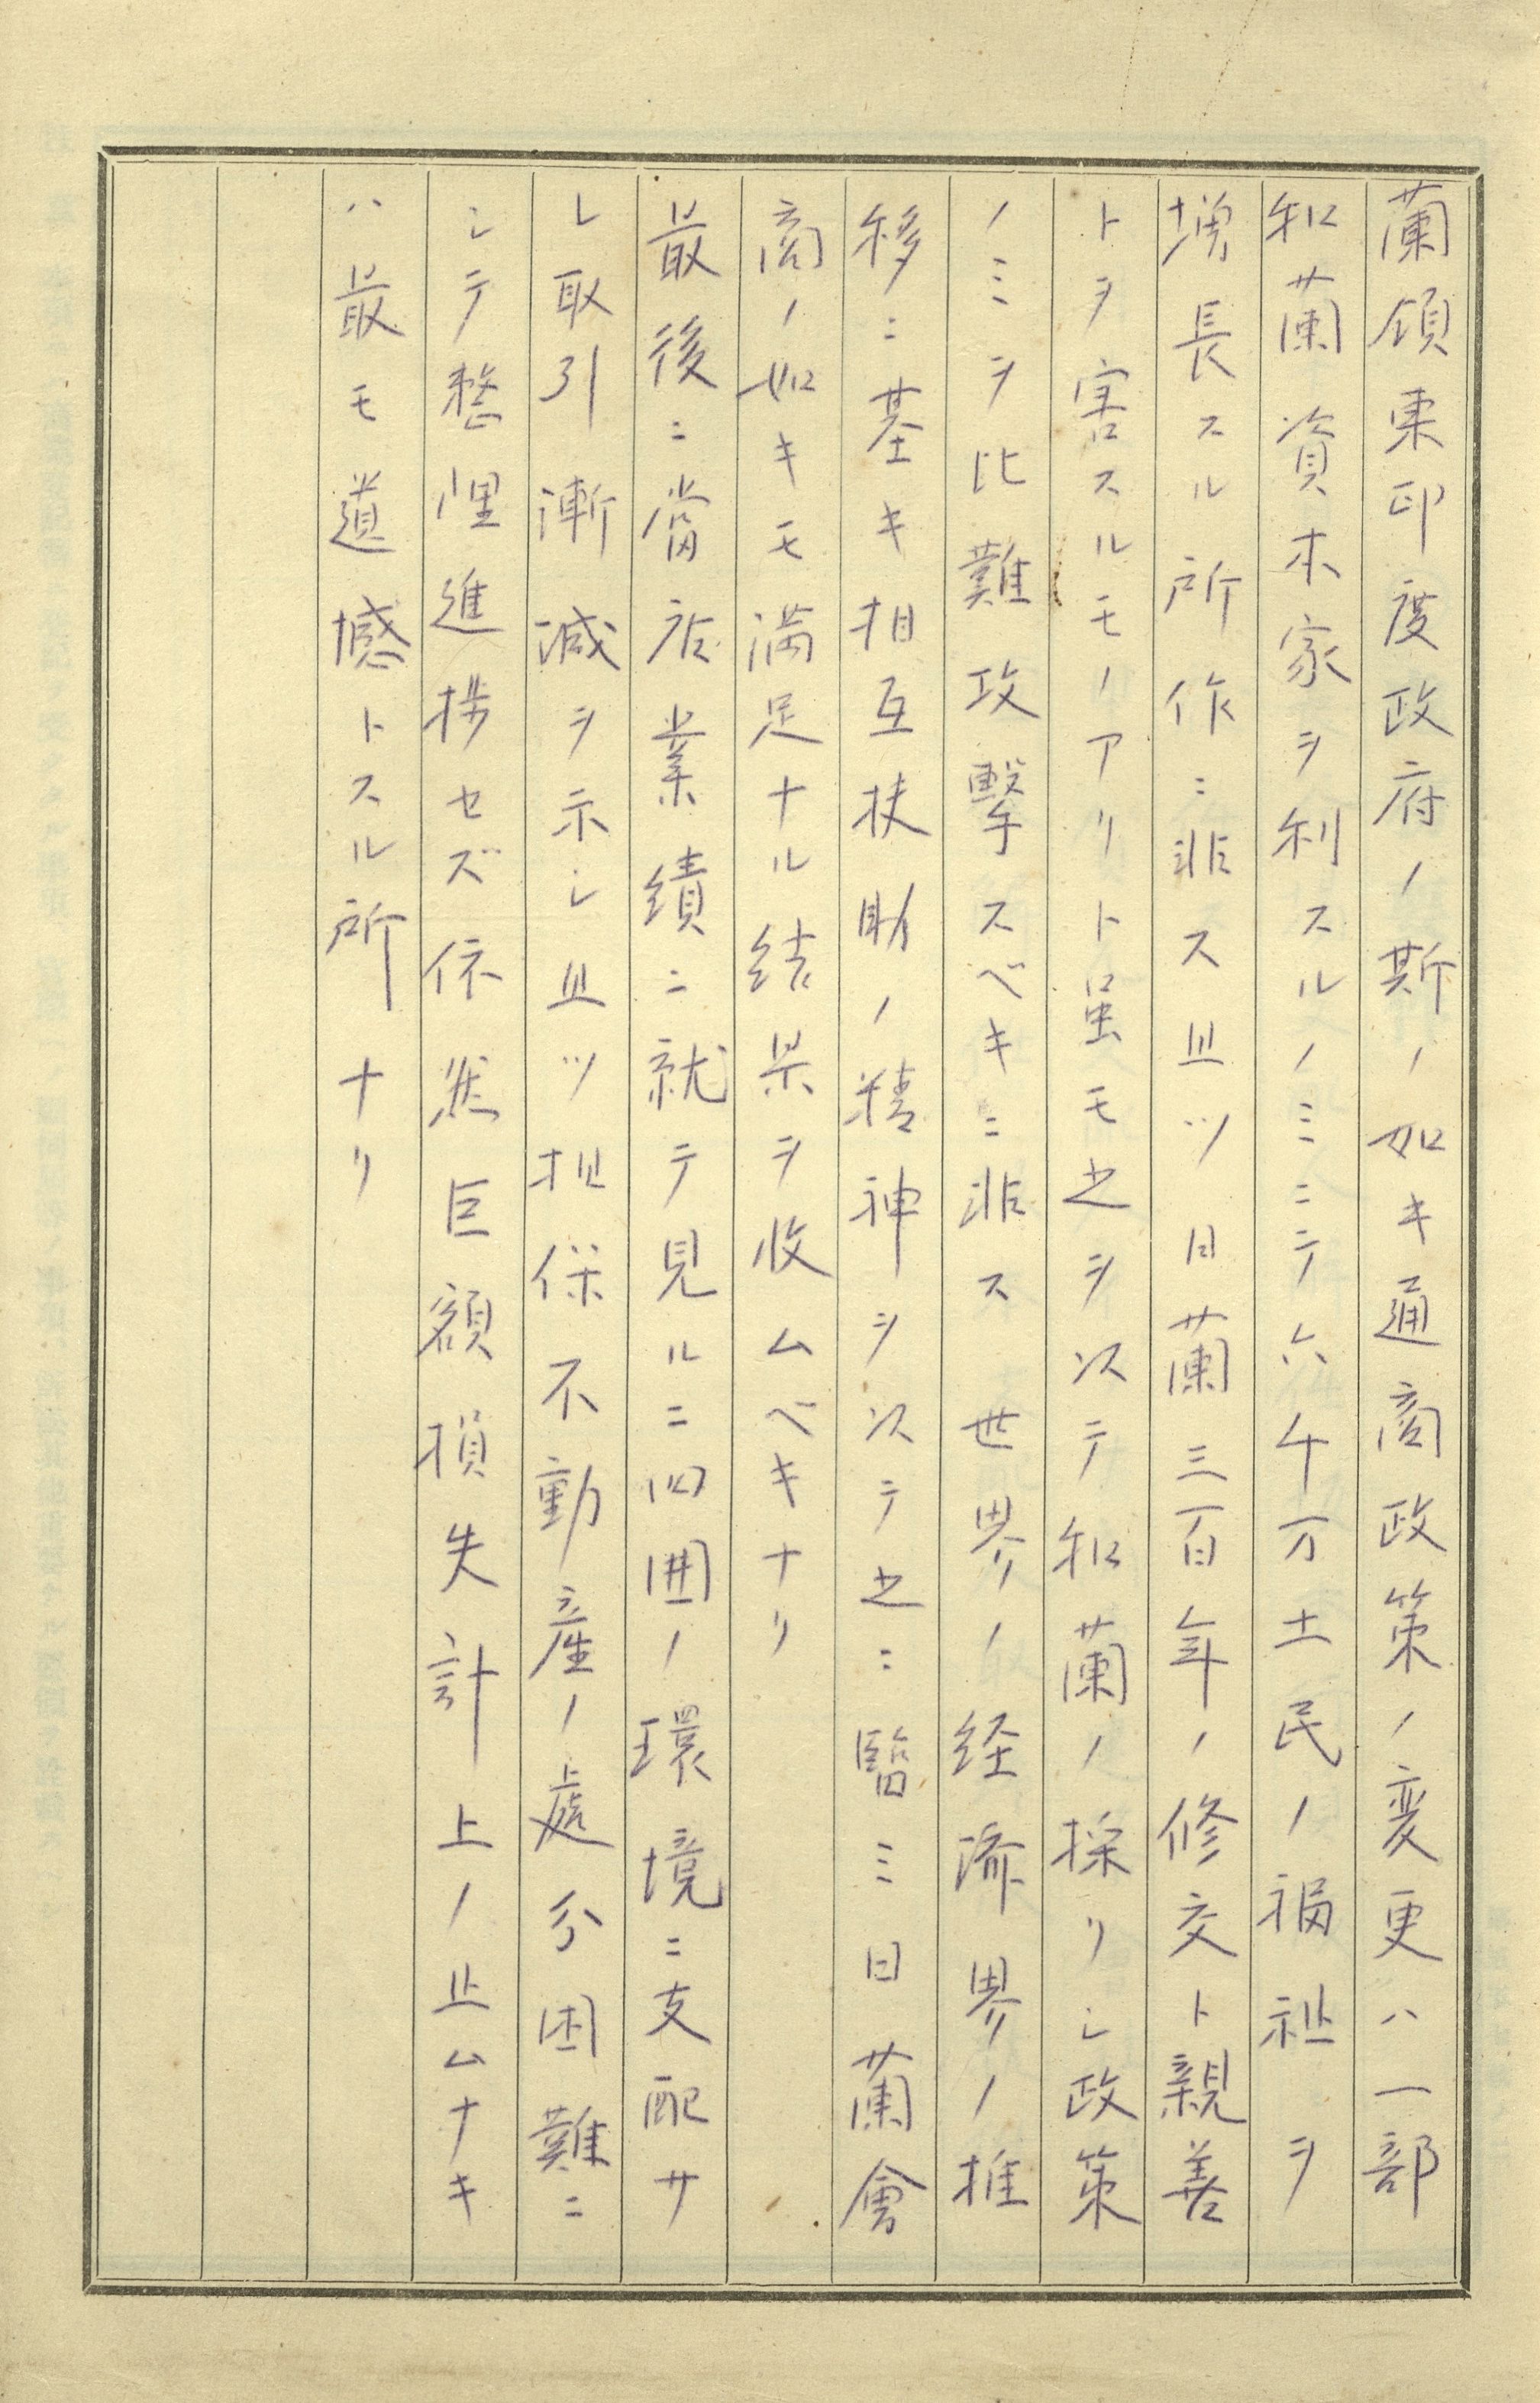 蘭領東印度政府ノ斯ノ如キ通商政策ノ変更ハ一部
和蘭資本家ヲ利スルノミニテ六千万土民ノ福祉ヲ
増長スル所作ニ非ス且ツ日蘭三百年ノ修交ト親善
トヲ害スルモノアリト虽モ之ヲ以テ和蘭ノ採リシ政策
ノミヲ比難攻撃スベキニ非ス世界ノ経済界ノ推
移ニ基キ相互扶助ノ精神ヲ以テ之ニ臨ミ日蘭會
商ノ如キモ満足ナル結果ヲ收ムベキナリ
最後ニ當店業績ニ就テ見ルニ四囲ノ環境ニ支配サ
レ取引漸減ヲ示シ且ツ担保不動産ノ處分困難ニ
シテ整理進捗セズ依然巨額損失計上ノ止ムナキ
ハ最モ遺憾トスル所ナリ